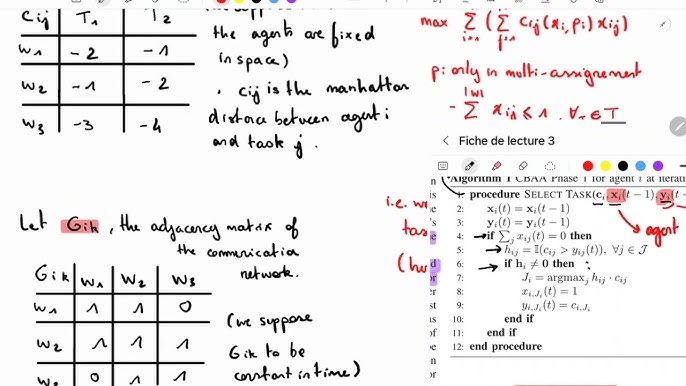 Cij T1 T2
W1 -2 -1
W2 -1 -2
W3 -3 -4
the agents are fixed
in space)
. cij is the manhattan
distance between agent i
and task j.
Let Gik, the adjacency matrix of
the communication
network.
Gik W1 W2 W3
W1 1 1 0
W2 1 1 1
0 1 1
(we suppose
Gik to be
constant in time)
max Σ ( Σ Cij(xi, pi) xij)
pi only in multi-assignement
- Σ xij ≤ 1, ∀
Fiche de lecture 3
Algorithm 1 CBAA Phase 1 for agent i at iterati
1: procedure SELECT TASK(ci, xi(t-1), yi(t-
2: xi(t) = xi(t-1)
3: yi(t) = yi(t-1)
4: if Σj xij(t) = 0 then
5: hij = 𝕀(cij > yij(t)), ∀j ∈ 𝒥
6: if hi ≠ 0 then
7: Ji = argmaxj hij · cij
8: xi,Ji(t) = 1
9: yi,Ji(t) = ci,Ji
10: end if
11: end if
12: end procedure
agent
i.e.